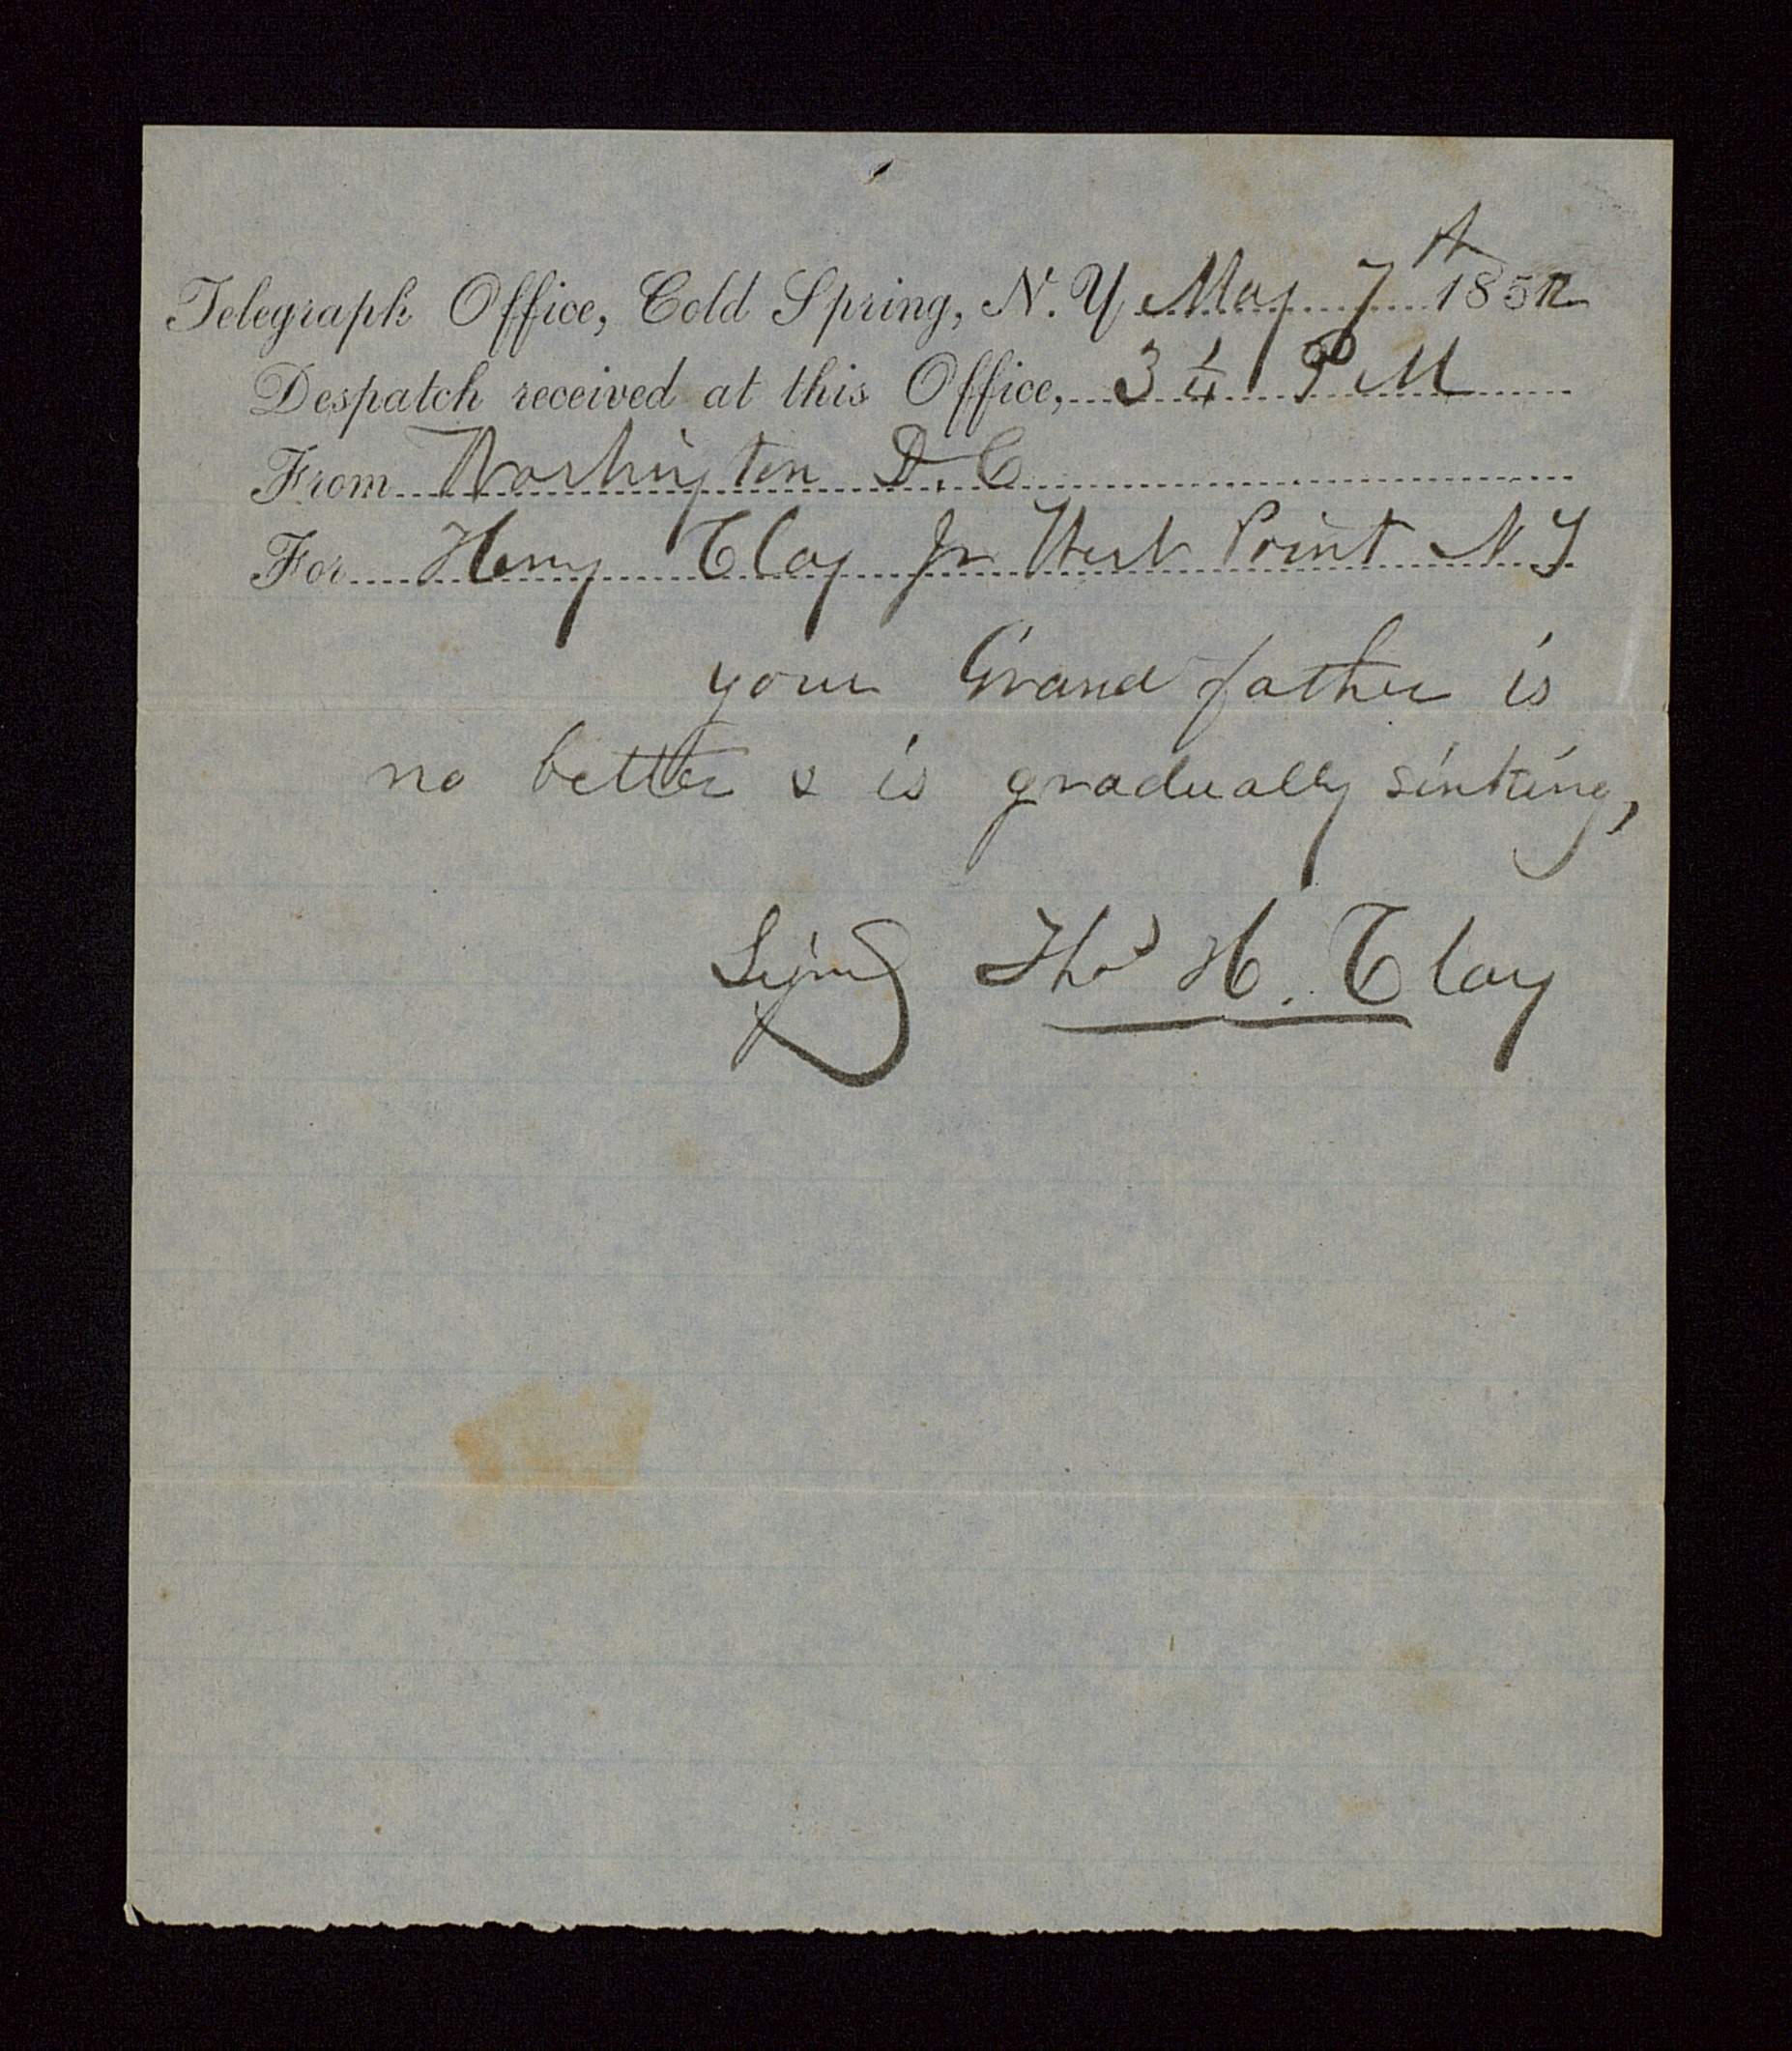 Telegraph Office, Cold Spring, N. Y. May 7th 1852
Despatch received at this Office, 3 1/4 P M
From Washington D. C
For Henry Clay Jr West Point N Y
your Grand father is
no better & is gradually sinking,
Signd Thos H. Clay